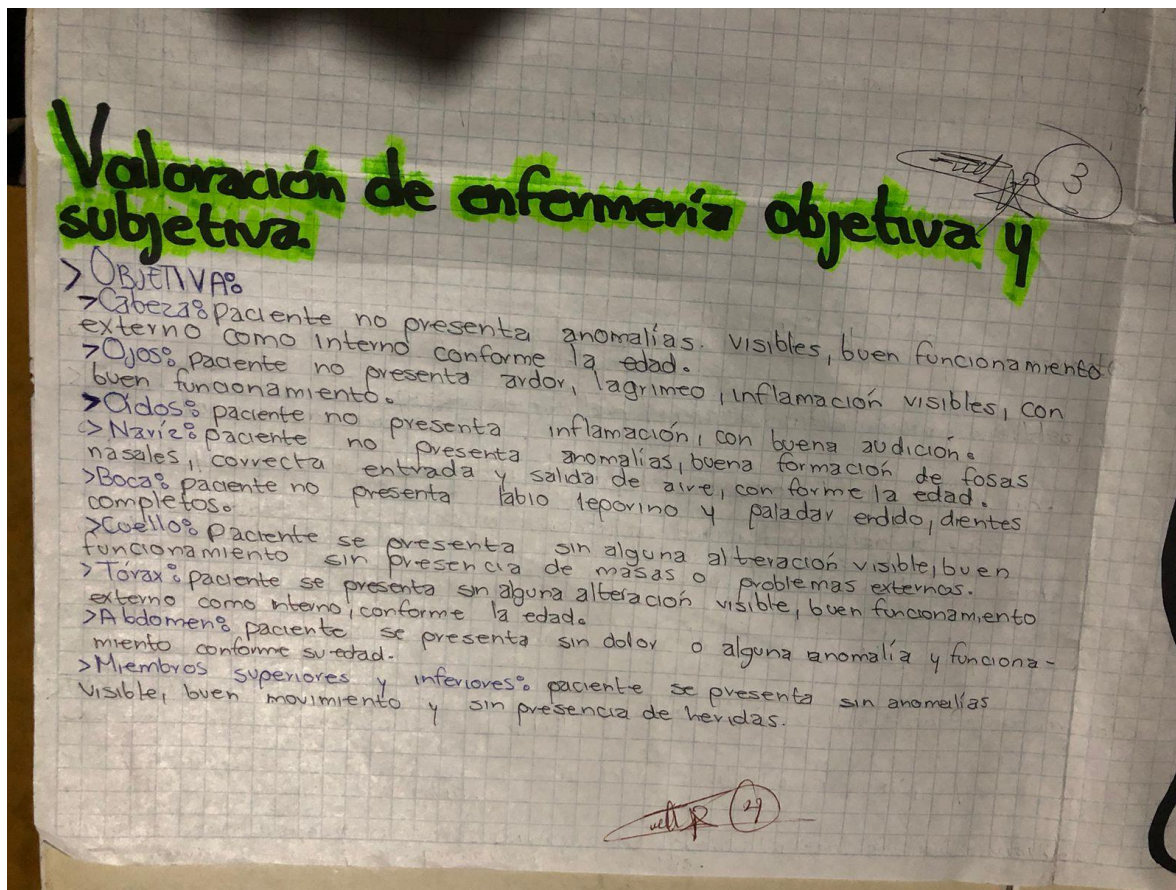 Valoración de enfermería objetiva y
subjetiva.
3
> OBJETIVA:
> Cabeza: Paciente no presenta anomalías. visibles, buen funcionamiento
externo como interno conforme la edad.
> Ojos: paciente no presenta ardor, lagrimeo, inflamación visibles, con
buen funcionamiento.
> Oídos: paciente no presenta inflamación, con buena audición.
> Naríz: paciente no presenta anomalías, buena formación de fosas
nasales, correcta entrada y salida de aire, con forme la edad.
> Boca: paciente no presenta labio leporino y paladar endido, dientes
completos.
> Cuello: Paciente se presenta sin alguna alteración visible, buen
funcionamiento sin presencia de masas o problemas externas.
> Tórax: paciente se presenta sin alguna alteración visible, buen funcionamiento
externo como interno, conforme la edad.
> Abdomen: paciente se presenta sin dolor o alguna anomalía y funciona-
miento conforme su edad.
> Miembros superiores y inferiores: paciente se presenta sin anomalías
visible, buen movimiento y sin presencia de heridas.